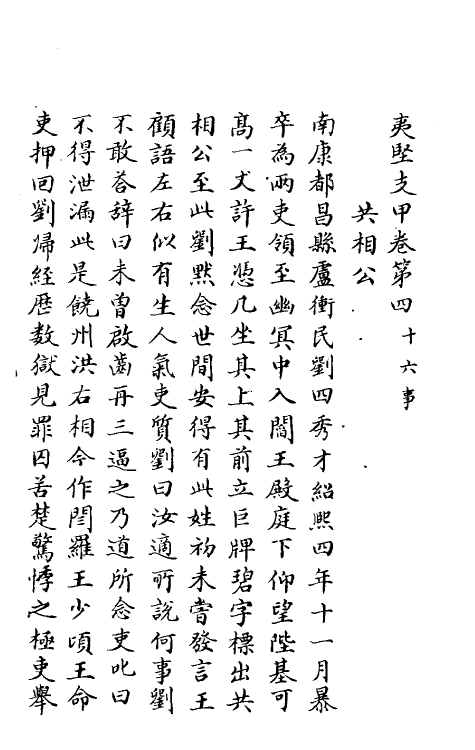 夷堅支甲卷第四十六事
共相公
南康都昌縣盧衝民劉四秀才紹熙四年十一月暴
卒為兩吏領至幽冥中入閻王殿庭下仰望陛基可
高一丈許王憑几坐其上其前立巨牌碧字標出共
相公至此劉黙念世間安得有此姓初未嘗發言王
顧語左右似有生人氣吏質劉曰汝適所說何事劉
不敢荅辞曰未曾啟齒再三逼之乃道所念吏叱曰
不得泄漏此是饒州洪右相今作閆羅王少頃王命
吏押回劉歸經歴数獄見罪囚苦楚驚悸之極吏舉